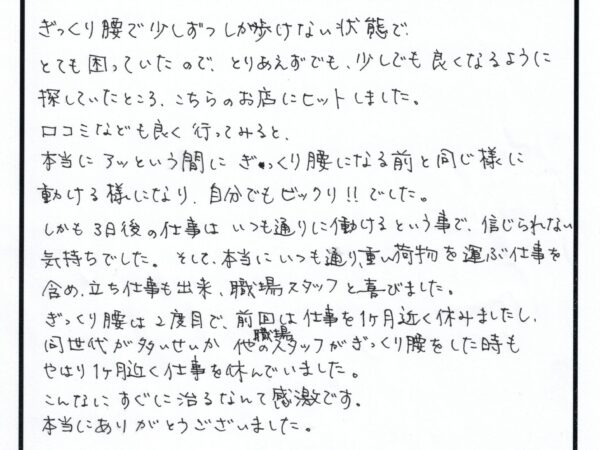 ぎっくり腰で少しずつしか歩けない状態で、
とても困っていたので、とりあえずでも、少しでも良くなるように
探していたところ、こちらのお店にヒットしました。
口コミなども良く行ってみると、
本当にアッという間にぎっくり腰になる前と同じ様に
動ける様になり、自分でもビックリ!!でした。
しかも3日後の仕事はいつも通りに働けるという事で、信じられない
気持ちでした。そして、本当にいつも通り、重い荷物を運ぶ仕事を
含め、立ち仕事も出来、職場スタッフと喜びました。
ぎっくり腰は2度目で、前回は仕事を1ヶ月近く休みましたし、
同世代が多いせいか他の職場スタッフがぎっくり腰をした時も
やはり1ヶ月近く仕事を休んでいました。
こんなにすぐに治るなんて感激です。
本当にありがとうございました。